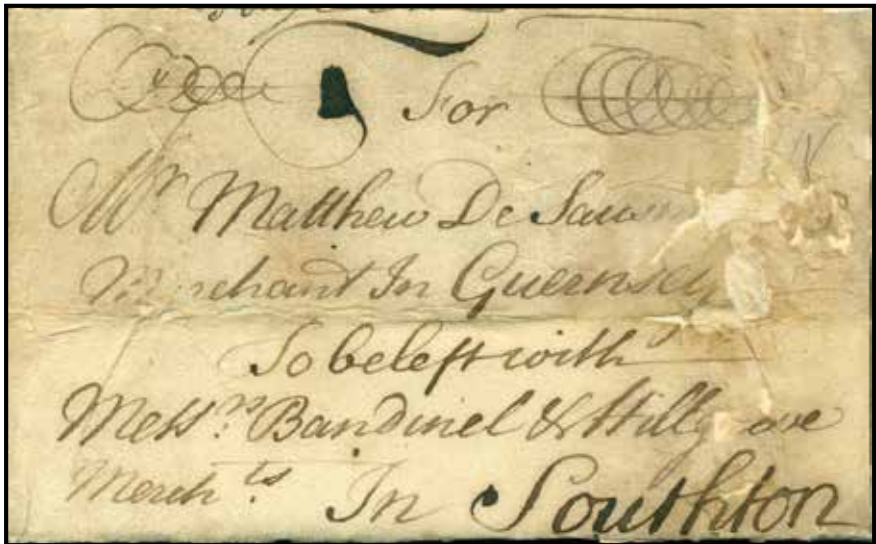 For
Mr Matthew De Saus
Merchant In Guernsey
To be left with
Messrs. Bandinel &
Merchts. In Southton